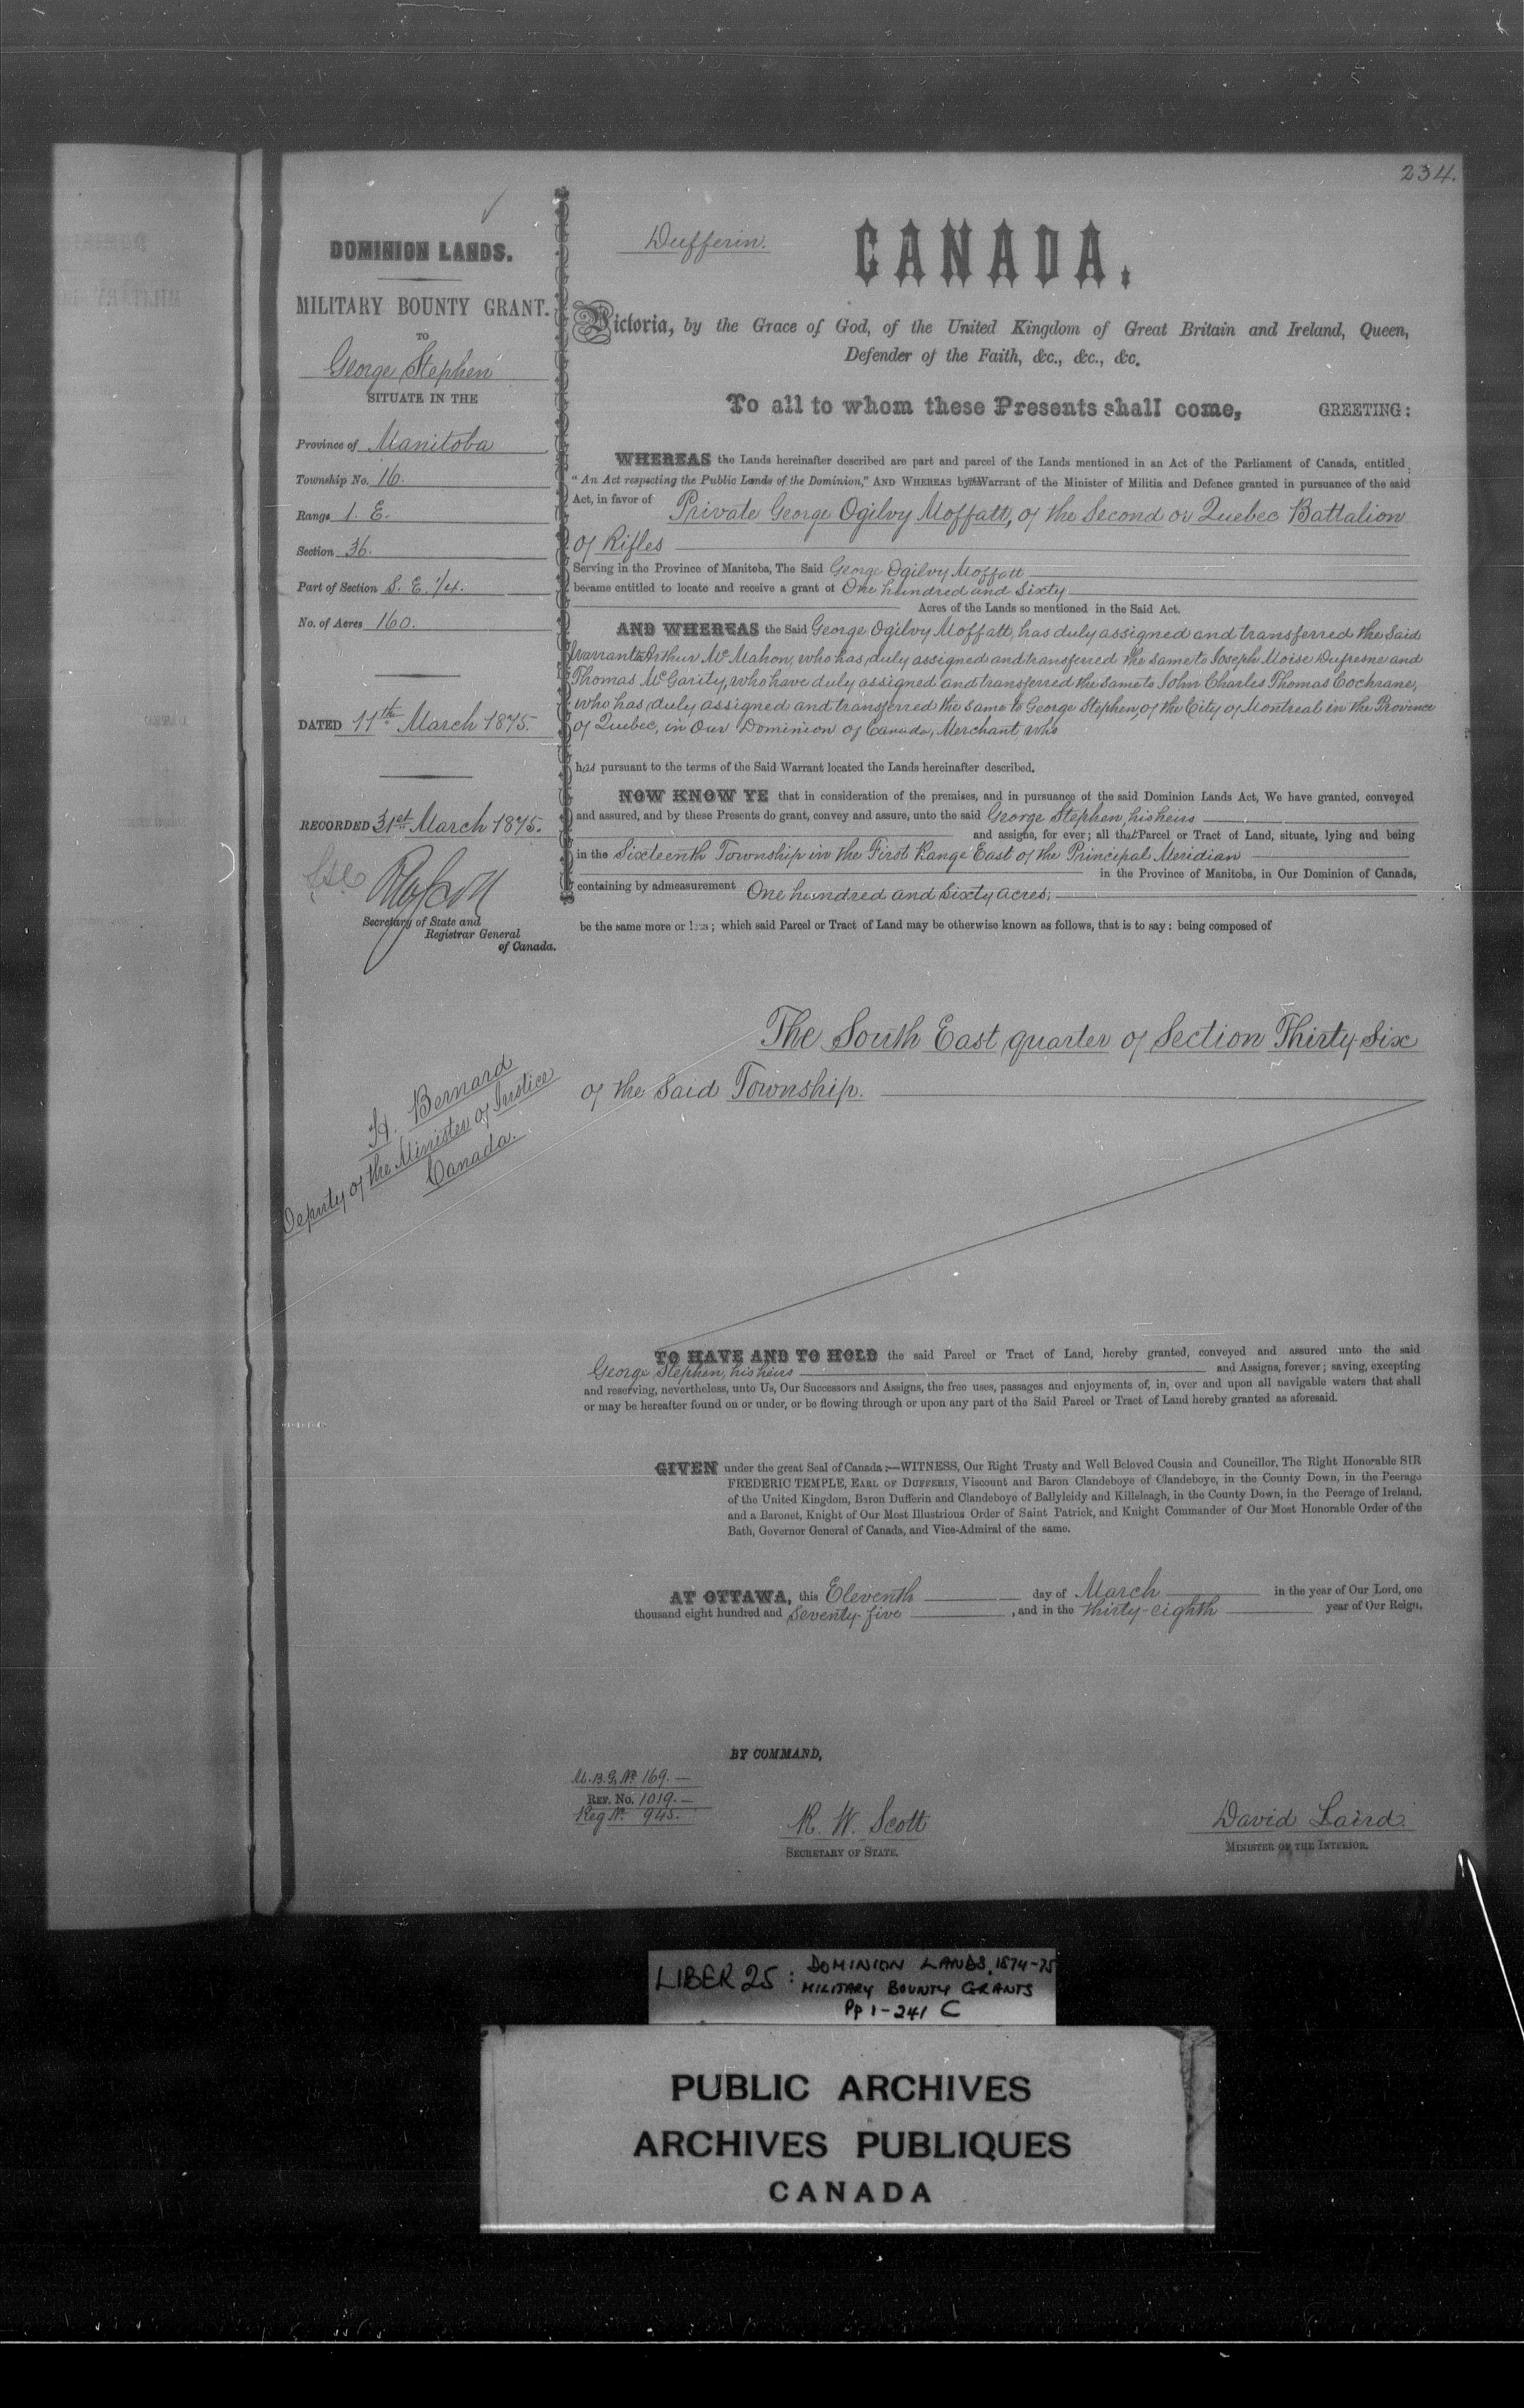 234.
DOMINION LANDS.
MILITARY BOUNTY GRANT.
TO
George Stephen
SITUATE IN THE
Province of Manitoba
Township No. 16.
Range 1. E.
Section 36.
Part of Section S. E. 1/4.
No. of Acres 160.
DATED 11th March 1875.
RECORDED 31st March 1875.
Secretary of State and
Registrar General
of Canada.
H. Bernard
Deputy of the Minister of Justice
Canada.
Dufferin.
CANADA.
Victoria, by the Grace of God, of the United Kingdom of Great Britain and Ireland, Queen,
Defender of the Faith, &c., &c., &c.
To all to whom these Presents shall come, GREETING:
WHEREAS the Lands hereinafter described are part and parcel of the Lands mentioned in an Act of the Parliament of Canada, entitled
"An Act respecting the Public Lands of the Dominion," AND WHEREAS by the Warrant of the Minister of Militia and Defence granted in pursuance of the said
Act, in favor of Private George Ogilvy Moffatt, of the Second or Quebec Battalion
of Rifles
Serving in the Province of Manitoba, The Said George Ogilvy Moffatt
became entitled to locate and receive a grant of One hundred and Sixty
Acres of the Lands so mentioned in the Said Act.
AND WHEREAS the Said George Ogilvy Moffatt, has duly assigned and transferred the Said
Warrant to Arthur McMahon, who has duly assigned and transferred the same to Joseph Moise Dufresne and
Thomas McGarity, who have duly assigned and transferred the same to John Charles Thomas Cochrane,
who has duly assigned and transferred the same to George Stephen, of the City of Montreal in the Province
of Quebec, in Our Dominion of Canada, Merchant, who
has pursuant to the terms of the Said Warrant located the Lands hereinafter described.
NOW KNOW YE that in consideration of the premises, and in pursuance of the said Dominion Lands Act, We have granted, conveyed
and assured, and by these Presents do grant, convey and assure, unto the said George Stephen, his heirs
and assigns, for ever; all that Parcel or Tract of Land, situate, lying and being
in the Sixteenth Township in the First Range East of the Principal Meridian
in the Province of Manitoba, in Our Dominion of Canada,
containing by admeasurement One hundred and Sixty acres,
be the same more or less; which said Parcel or Tract of Land may be otherwise known as follows, that is to say: being composed of
The South East quarter of Section Thirty-Six
of the Said Township.
TO HAVE AND TO HOLD the said Parcel or Tract of Land, hereby granted, conveyed and assured unto the said
George Stephen, his heirs and Assigns, forever; saving, excepting
and reserving, nevertheless, unto Us, Our Successors and Assigns, the free uses, passages and enjoyments of, in, over and upon all navigable waters that shall
or may be hereafter found on or under, or be flowing through or upon any part of the Said Parcel or Tract of Land hereby granted as aforesaid.
GIVEN under the great Seal of Canada:—WITNESS, Our Right Trusty and Well Beloved Cousin and Councillor, The Right Honorable SIR
FREDERIC TEMPLE, EARL OF DUFFERIN, Viscount and Baron Clandeboye of Clandeboye, in the County Down, in the Peerage
of the United Kingdom, Baron Dufferin and Clandeboye of Ballyleidy and Killeleagh, in the County Down, in the Peerage of Ireland,
and a Baronet, Knight of Our Most Illustrious Order of Saint Patrick, and Knight Commander of Our Most Honorable Order of the
Bath, Governor General of Canada, and Vice-Admiral of the same.
AT OTTAWA, this Eleventh day of March in the year of Our Lord, one
thousand eight hundred and Seventy-five, and in the thirty-eighth year of Our Reign.
BY COMMAND,
M.B.G. No 169.
REF. No. 1019.
Reg No. 945.
R. W. Scott
SECRETARY OF STATE.
David Laird.
MINISTER OF THE INTERIOR.
LIBER 25: DOMINION LANDS, 1874-75
MILITARY BOUNTY GRANTS
Pp 1-241 C
PUBLIC ARCHIVES
ARCHIVES PUBLIQUES
CANADA